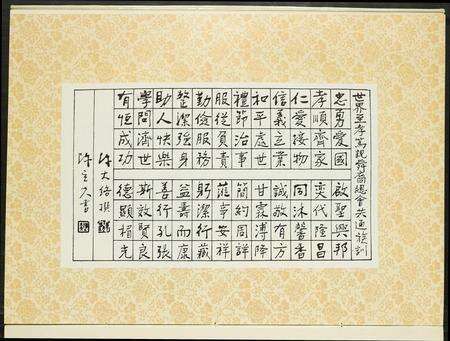 世界至孝篤親舜裔總會共通族訓
忠勇愛國 啟聖興邦
孝順齊家 奕代隆昌
仁愛接物 同沐馨香
信義立業 誠敬有方
和平處世 甘霖溥降
禮節治事 簡約周詳
服從負責 安祥
勤儉服務 躬潔行藏
整潔強身 益壽而康
助人快樂 善行孔張
學問濟世 斯敦賢良
有恆成功 德顯楣光
陳大絡撰
陳立夫書